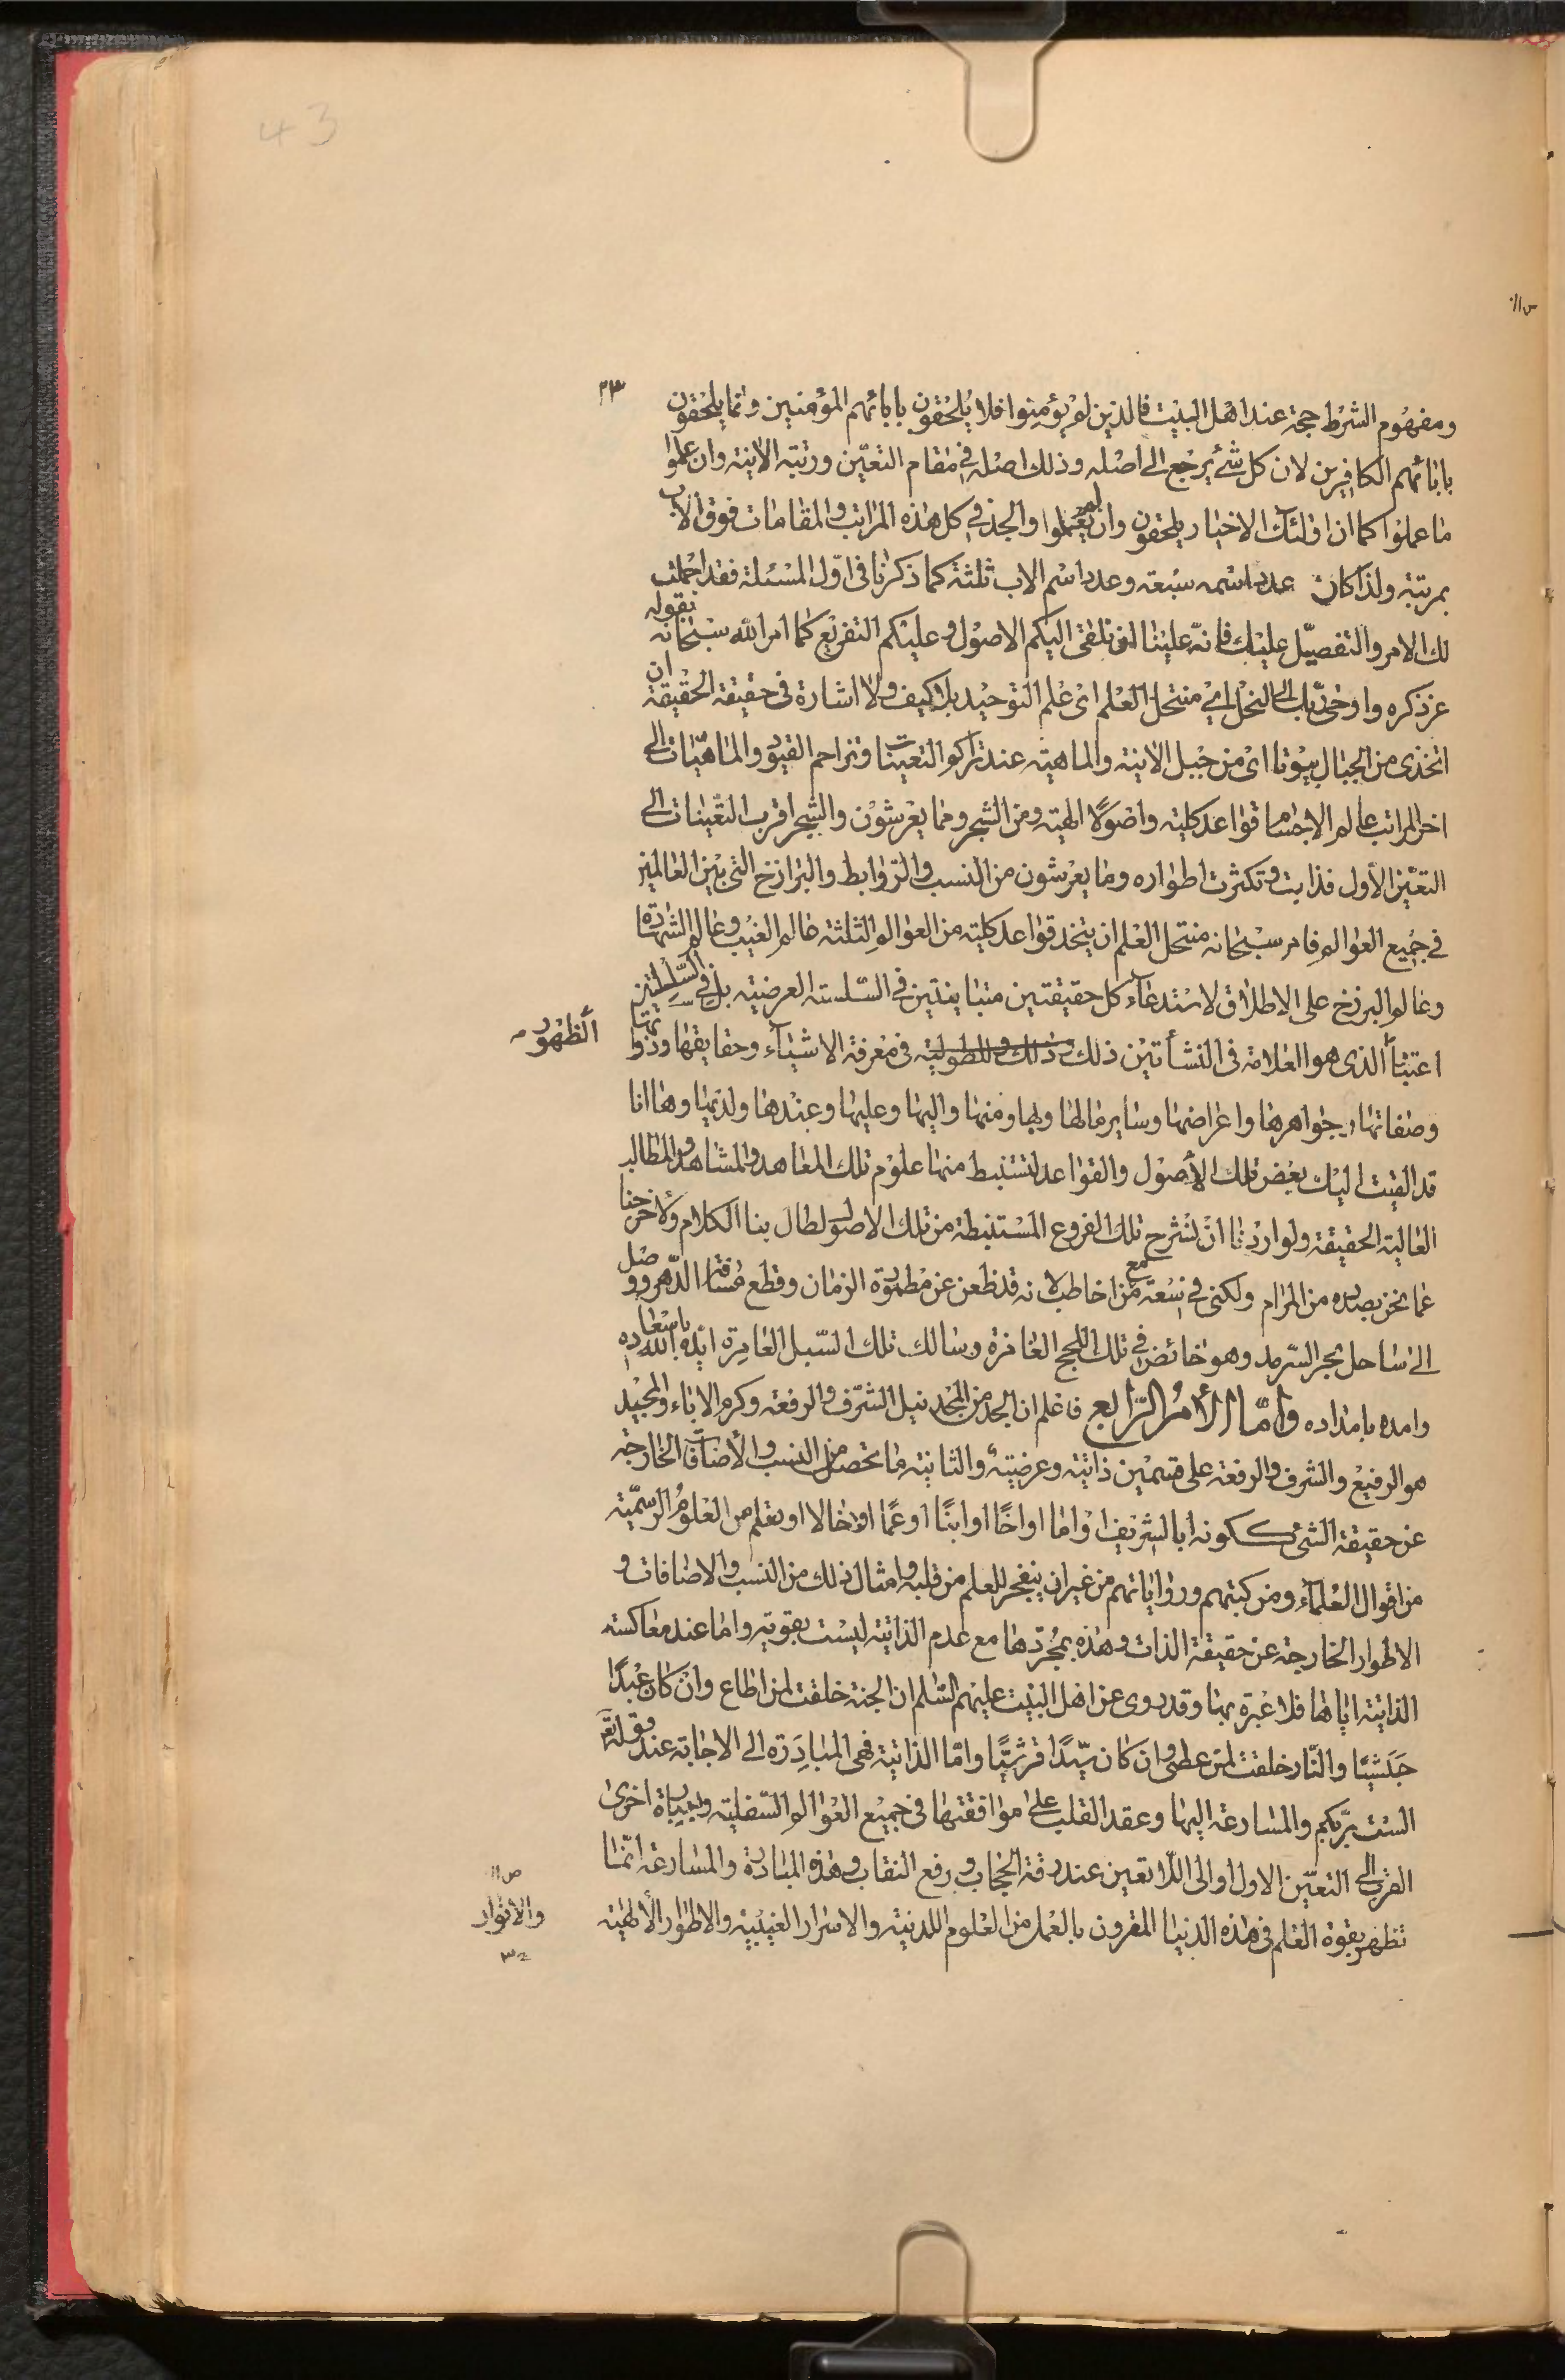 43
٤٣
ومفهوم الشرط حجة عند اهل البيت فالذين لم يؤمنوا فلا يلحقون بابائهم المؤمنين وانما يلحقون
بابائهم الكافرين لان كل شئ يرجع الى اصله وذلك اصله فى مقام التعين ورتبة الانية وان علموا
ما عملوا كما ان اولئك الاخيار يلحقون وان لم يعملوا والجد فى كل هذه المراتب والمقامات فوق الاب
بمرتبة ولذا كان عدد اسمه سبعة وعدد اسم الاب ثلثة كما ذكرنا فى اول المسئلة فقد اجملت
لك الامر والتفصيل عليك فانه علينا ان نلقى اليكم الاصول وعليكم التفريع كما امر الله سبحانه بقوله
عز ذكره واوحى ربك الى النحل اى منتحل العلم اى علم التوحيد بلا كيف ولا اشارة فى حقيقة الحقيقة ان
اتخذى من الجبال بيوتا اى من جبل الانية والماهية عند تراكو التعينات وتزاحم القيود والماهيات الى
اخر المراتب عالم الاجسام قواعد كلية واصولا الهية ومن الشجر ومما يعرشون والشجر اقرب التعينات الى
التعين الأول فذابت وتكثرت اطواره وما يعرشون من النسب والروابط والبرازخ التى بين العالمين
فى جميع العوالم فامر سبحانه منتحل العلم ان يتخذ قواعد كلية من العوالم الثلثة عالم الغيب وعالم الشهادة
وعالم البرزخ على الاطلاق لاستدعاء كل حقيقتين متباينتين فى السلسلة العرضية بل فى السلسلتين
اعتبنا الذى هو العلامة فى النشأتين ذلك ذلك والطولية فى معرفة الاشياء وحقايقها وذواتها
الظهور
وصفاتها وجواهرها واعراضها وساير ما لها وبها ومنها واليها وعليها وعندها ولديها وها انا
قد القيت اليك بعض تلك الأصول والقواعد لتستنبط منها علوم تلك المعاهد والمشاهد والمطالب
العالية الحقيقة ولو اردنا ان نشرح تلك الفروع المستنبطة من تلك الاصول لطال بنا الكلام ولاخرجنا
عما نحن بصدده من المرام ولكنى فى سعة مع من اخاطب لانه قد ظعن عن مطمورة الزمان وقطع مسافة الدهر ووصل
الى ساحل بحر السرمد وهو خائض فى تلك اللجج الغامرة وسالك تلك السبل العامرة ايده الله باسعاده
وامده بامداده واما الأمر الرابع فاعلم ان الجد من المجد نيل الشرف والرفعة وكرم الاباء والمجيد
هو الرفيع والشرف والرفعة على قسمين ذاتية وعرضية والثانية ما تحصل من النسب والأضافات الخارجة
عن حقيقة الشئ ككونه ابا لشريف او اما او اخا او ابنا او عما او خالا او يعلم من العلوم الرسمية
من اقوال العلماء ومن كتبهم ورواياتهم من غير ان ينفجر للعلم من قلبه وامثال ذلك من النسب والاضافات و
الاطوار الخارجة عن حقيقة الذات وهذه بمجردها مع عدم الذاتية ليست بقوية واما عند معاكسة
الذاتية اياها فلا عبرة بها وقد روى عن اهل البيت عليهم السلم ان الجنة خلقت لمن اطاع وان كان عبدا
حبشيا والنار خلقت لمن عصى وان كان سيدا قرشيا واما الذاتية فهى المبادرة الى الاجابة عند قوله تع
الست بربكم والمسارعة اليها وعقد القلب على موافقتها فى جميع العوالم السفلية وبعبارة اخرى
القرب الى التعين الاول او الى اللا تعين عند رقة الحجاب ورفع النقاب وهذه المبادرة والمسارعة انما
تظهر بقوة العلم فى هذه الدنيا المقرون بالعمل من العلوم اللدنية والاسرار الغيبية والاطوار الألهية
والانوار